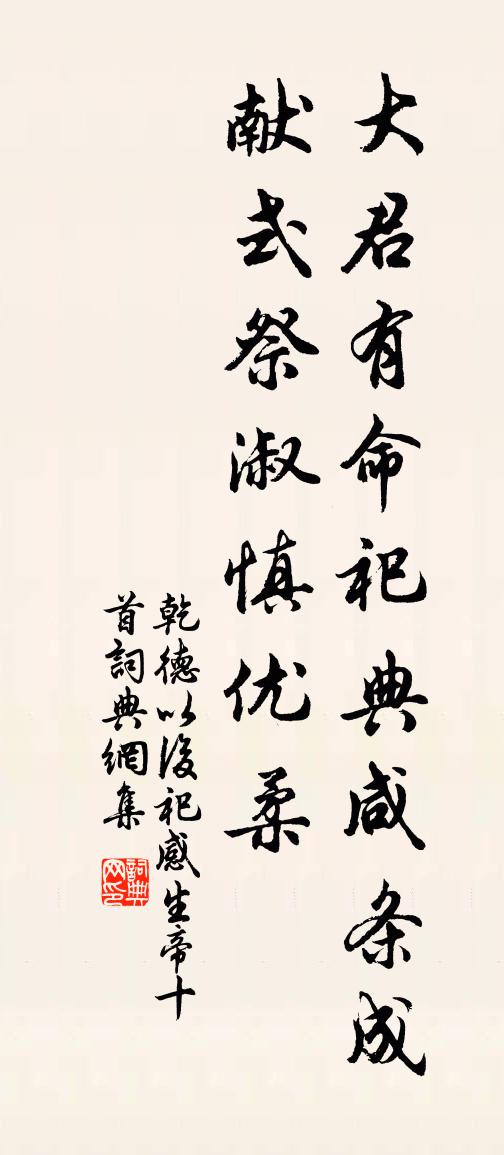 大君有命祀典咸条成
献式祭淑慎优柔
乾德以後祀感生帝十
首詞典網集
詞典
网印